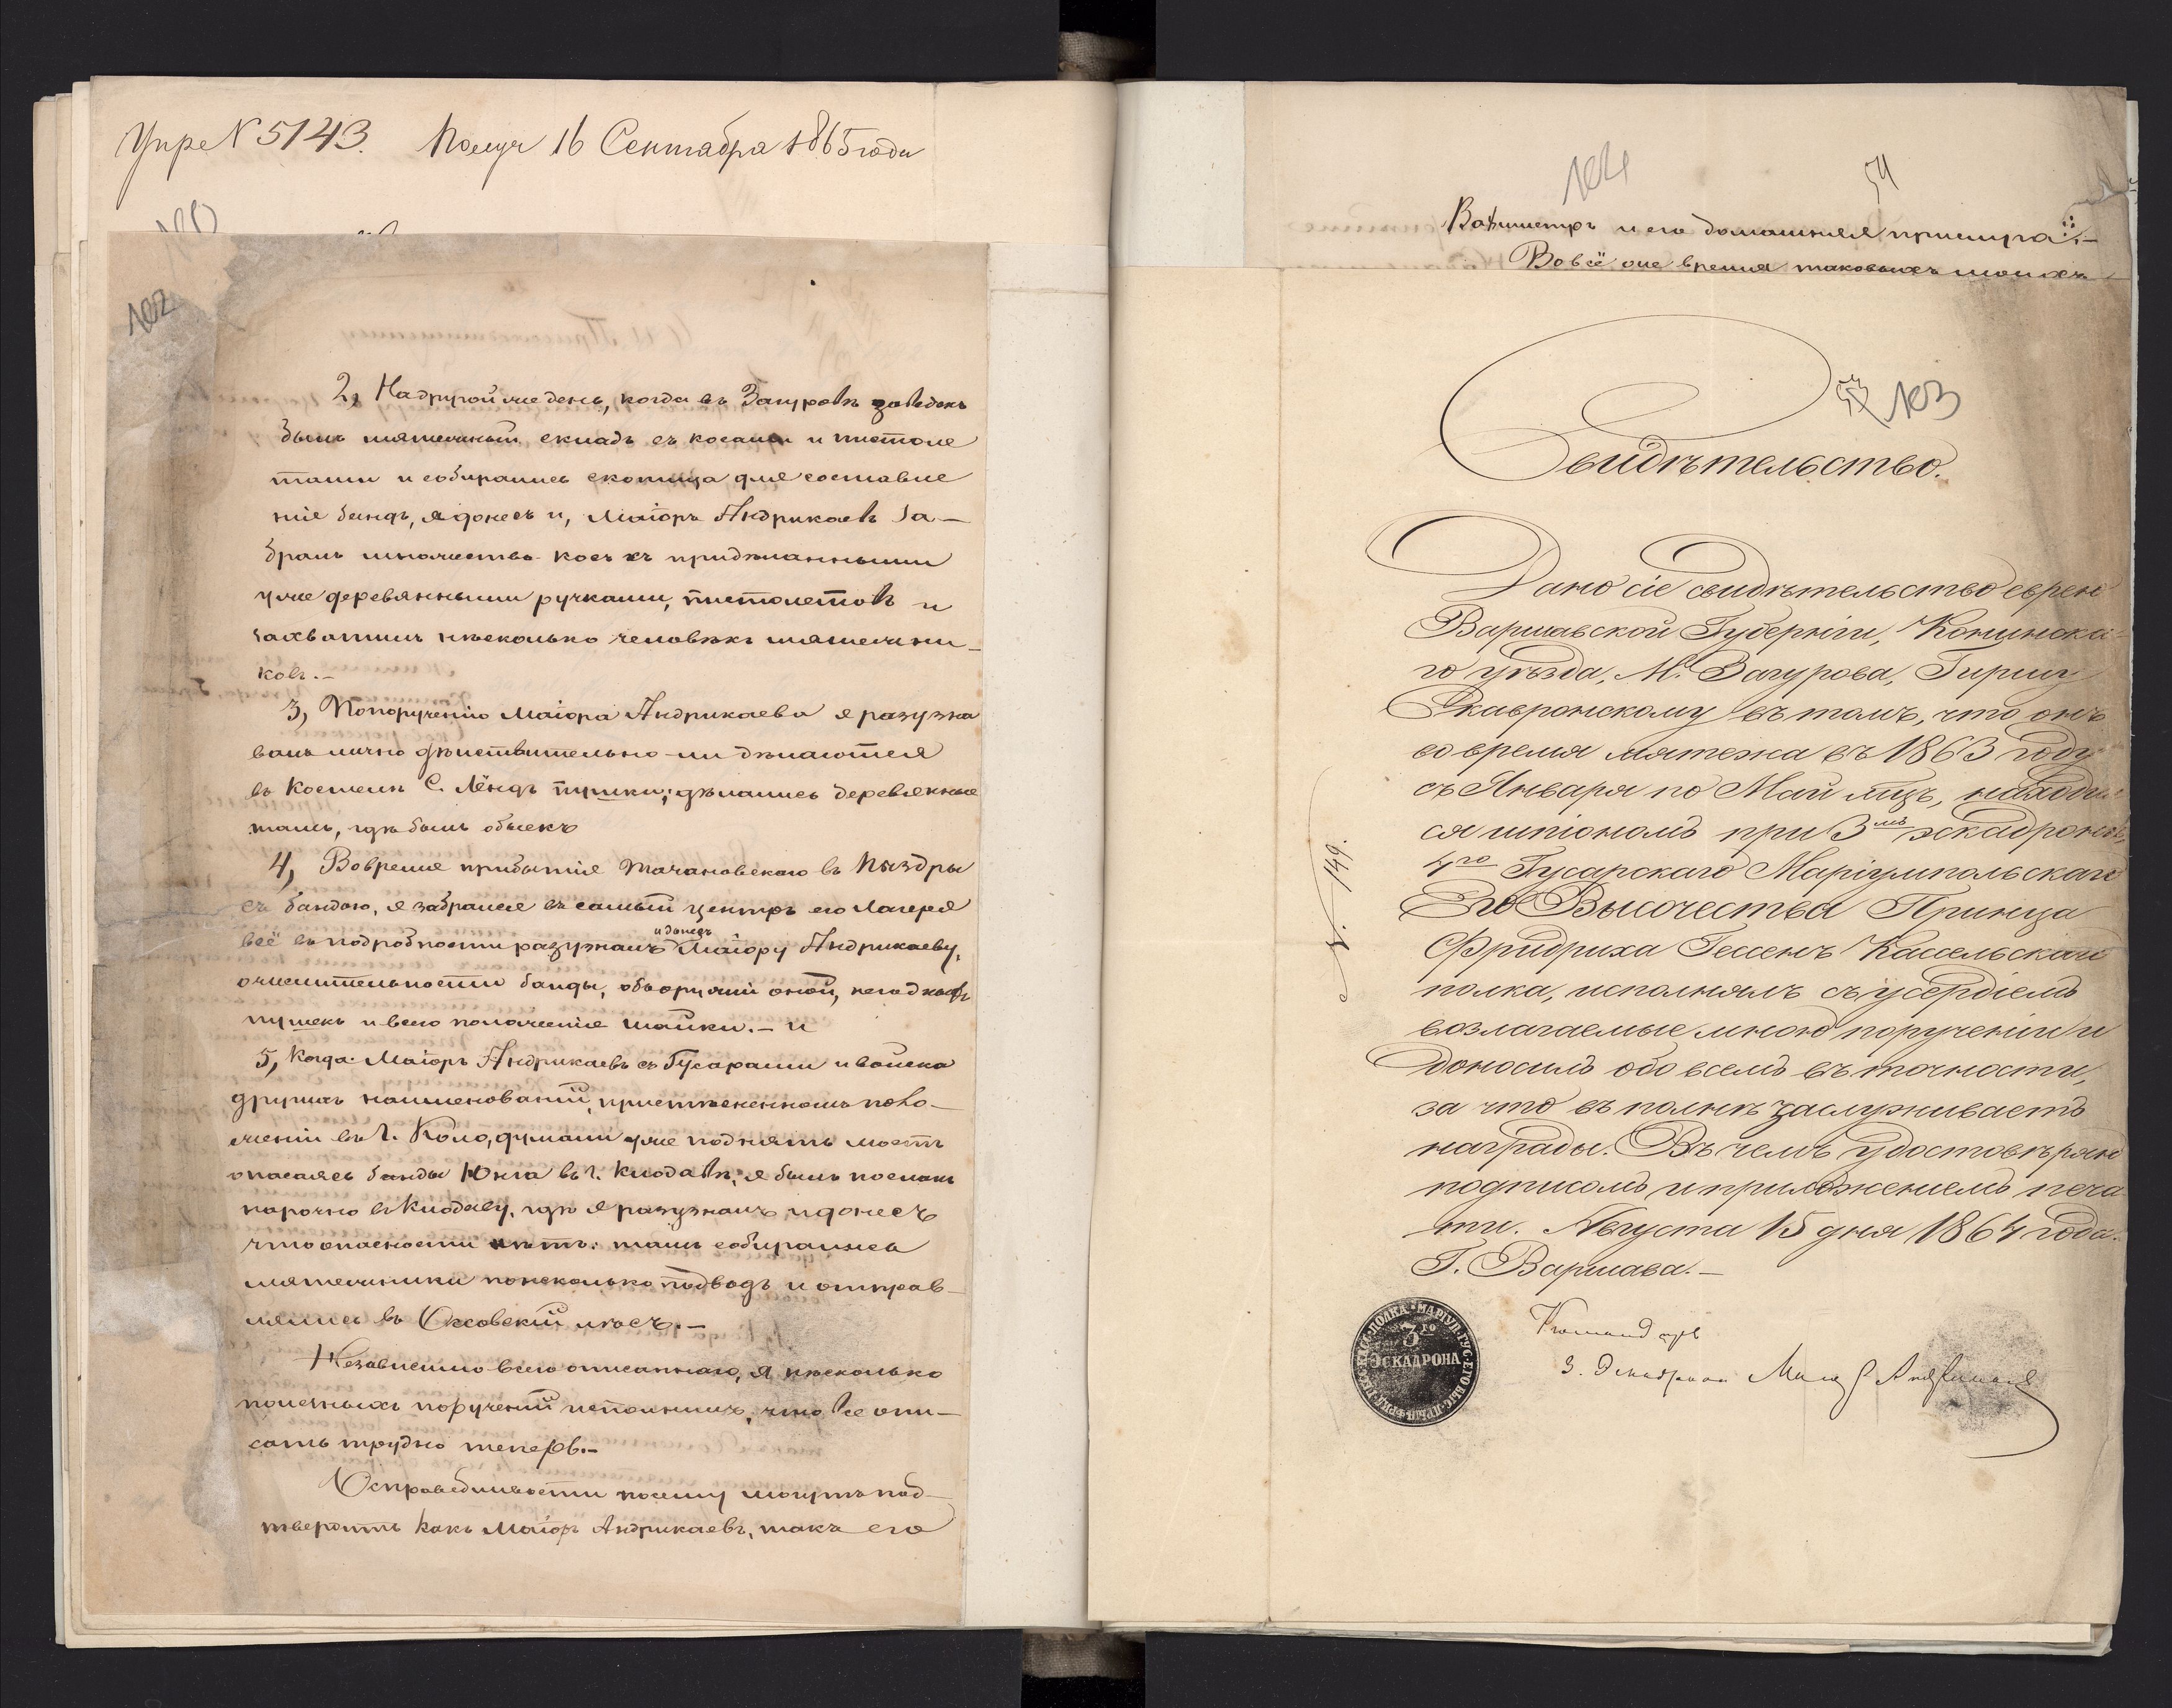 Упре N 5143. Получ 16 Сентября 1865 года
102
2, На другой же день, когда въ Загуровѣ заведенъ
былъ мятежный складъ съ косами и пистоле
тами и собирались скопища для составле
нія бандъ, я донесъ и, Маіоръ Андрикаевъ за-
бралъ множество косъ съ придѣланными
уже деревянными ручками, пистолетовъ и
захватилъ нѣсколько человѣкъ мятежни-
ковъ.-
3, По порученію Маіора Андрикаева я разузна
валъ лично дѣйствительно-ли дѣлаются
въ Костелѣ С. Лёндъ пушки; дѣлались деревянные
тамъ, гдѣ былъ обыскъ
4, Вовремя прибытія Тачановскаго въ Пыздры
съ бандою, я забрался въ самый центръ его Лагеря
всё въ подробности разузналъ и донесъ Маіору Андрикаеву,
о численности банды, обворужій оной, негодныхъ
пушекъ и всего положеніе шайки.- и
5, Когда Маіоръ Андрикаевъ съ Гусарами и войска
другихъ наименованій, при стѣсненномъ поло-
женіи въ г. Коло, думали уже поднять мостъ
опасаясь банды Юнга въ г. Клодавѣ; я былъ посланъ
нарочно въ Клодаву, гдѣ я разузналъ и донесъ
что опасности нѣтъ: тамъ собирались
мятежники по нѣсколько подводъ и отправ-
лялись въ Оковскій лѣсъ.-
Независимо всего описаннаго, я нѣсколько
полезныхъ порученій исполнилъ, что все опи-
сать трудно теперь.-
О справедливости посему могутъ под-
твердить какъ Маіоръ Андрикаевъ, такъ его
104
54
Вахмистръ и его домашняя прислуга.-
Во всё оне время таковыхъ моихъ
103
Свидѣтельство.
Дано сіе свидѣтельство еврею
Варшавской Губерніи, Конинска-
го уѣзда, М. Загурова, Гиршу
Скавронскому въ томъ, что онъ
во время мятежа въ 1863 году
съ Января по Май мцъ, находил-
ся шпіономъ при 3мъ эскадронѣ,
4го Гусарскаго Маріумпольскаго
Его Высочества Принца
Фридриха Гессенъ Кассельскаго
полка, исполнялъ съ усердіемъ
возлагаемые мною порученіи и
доносилъ обо всемъ въ точности,
за что въ полнѣ заслуживаетъ
награды. Въ чемъ удостовѣряю
подписомъ и приложеніемъ печа
ти. Августа 15 дня 1864 года.
Г. Варшава.-
№ 149.
3го
ЭСКАДРОНА
Командиръ
3. Эскадрона Маіоръ Андрикаевъ